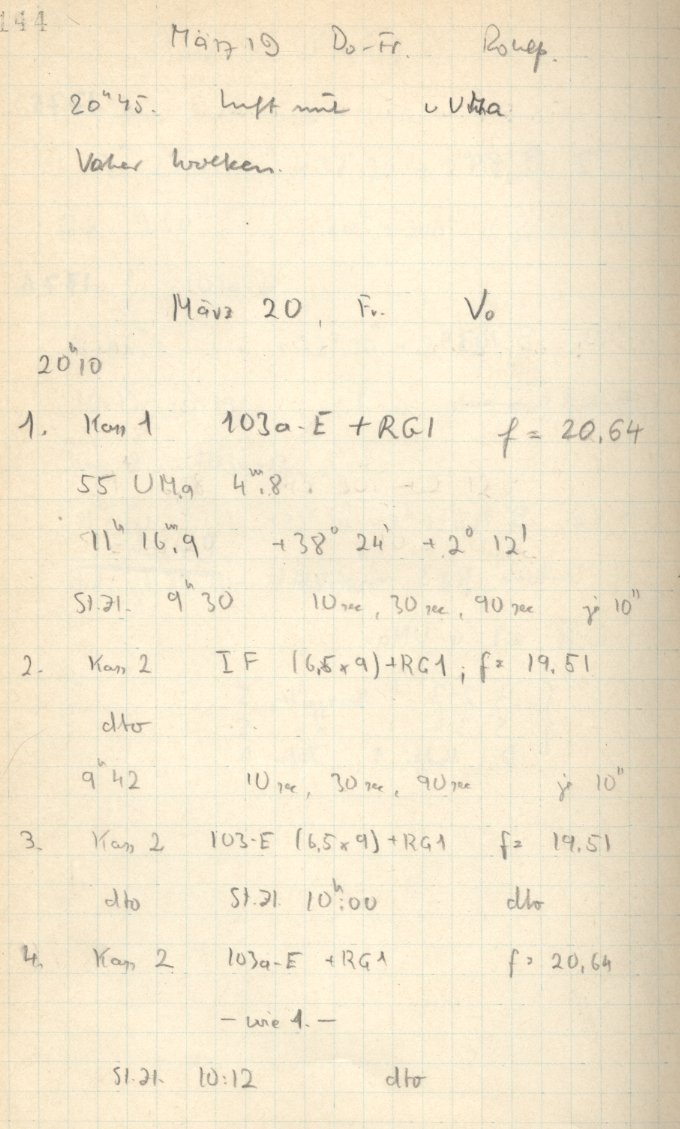 144
März 19 Do-Fr.
20ʰ45. Luft mit υ UMa
Vorher Wolken.
März 20, Fr. Vo
20ʰ10
1. Kass 1 103a-E + RG1 f = 20,64
55 UMa 4ᵐ.8
11ʰ 16ᵐ.9 +38° 24' +2° 12'
St.Zt. 9ʰ30 10 sec, 30 sec, 90 sec je 10"
2. Kass 2 IF (6,5x9)+RG1; f= 19.51
dto
9ʰ42 10 sec, 30 sec, 90 sec je 10"
3. Kass 2 103-E (6,5x9)+RG1 f= 19.51
dto St.Zt. 10ʰ:00 dto
4. Kass 2 103a-E +RG1 f= 20,64
- wie 1. -
St.Zt. 10:12 dto